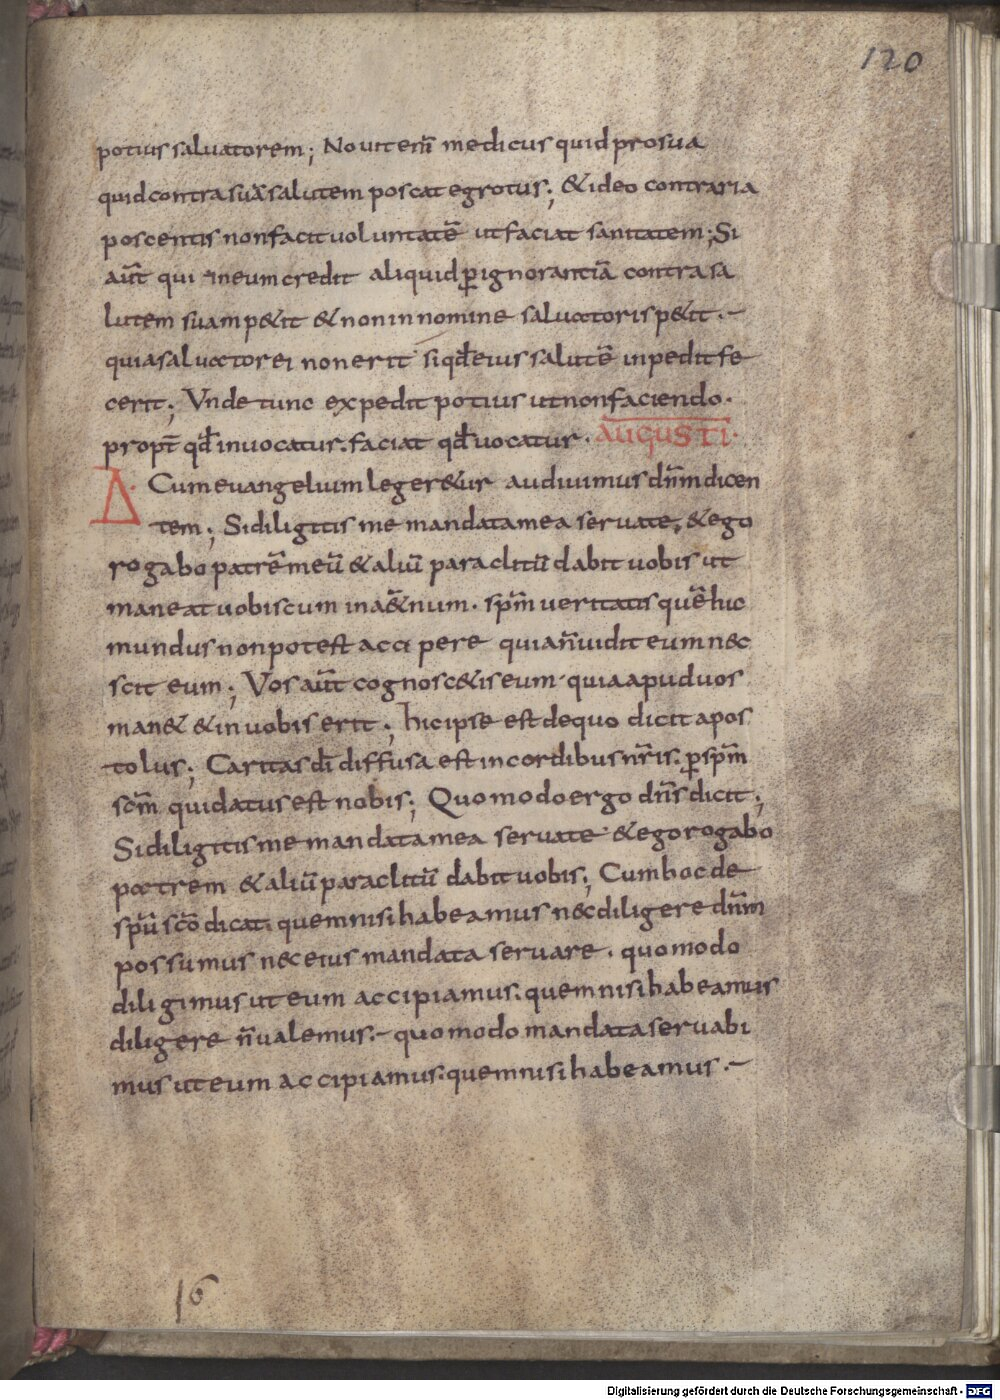 120
potius saluatorem; Nouit eni̅ medicus quid pro sua
quid contra sua̅ salutem poscat egrotus; & ideo contraria
poscentis non facit uoluntate̅ ut faciat sanitatem; Si
aut̅ qui in eum credit aliquid ꝑ ignorantia̅ contra sa
lutem suam p&it & non in nomine saluatoris p&it .-
quia saluator ei non erit si qđ eius salute̅ inpedit fe
cerit; Vnde tunc expedit potius ut non faciendo.
propt̅ qđ inuocatur. faciat qđ uocatur. AUGUSTI.
Δ. Cum euangelium leger&ur audiuimus dn̅m dicen
tem; Si diligitis me mandata mea seruate, & ego
rogabo patre̅ meu̅ & aliu̅ paraclitu̅ dabit uobis ut
maneat uobiscum in a&̅num. spm̅ ueritatis que̅ hic
mundus non potest accipere quia n̅ uidit eum nec
scit eum; Vos aut̅ cognosc&is eum quia apud uos
man& & in uobis erit; hic ipse est de quo dicit apos
tolus; Caritas di̅ diffusa est in cordibus nr̅is. ꝑ spm̅
scm̅ qui datus est nobis; Quomodo ergo dn̅s dicit;
Si diligitis me mandata mea seruate & ego rogabo
patrem & aliu̅ paraclitu̅ dabit uobis; Cum hoc de
spu̅ sco̅ dicat. quem nisi habeamus nec diligere dn̅m
possumus nec eius mandata seruare. quomodo
diligimus ut eum accipiamus. quem nisi habeamus
diligere n̅ ualemus.- quomodo mandata seruabi
mus ut eum accipiamus. quem nisi habeamus .-
16
Digitalisierung gefördert durch die Deutsche Forschungsgemeinschaft - DFG